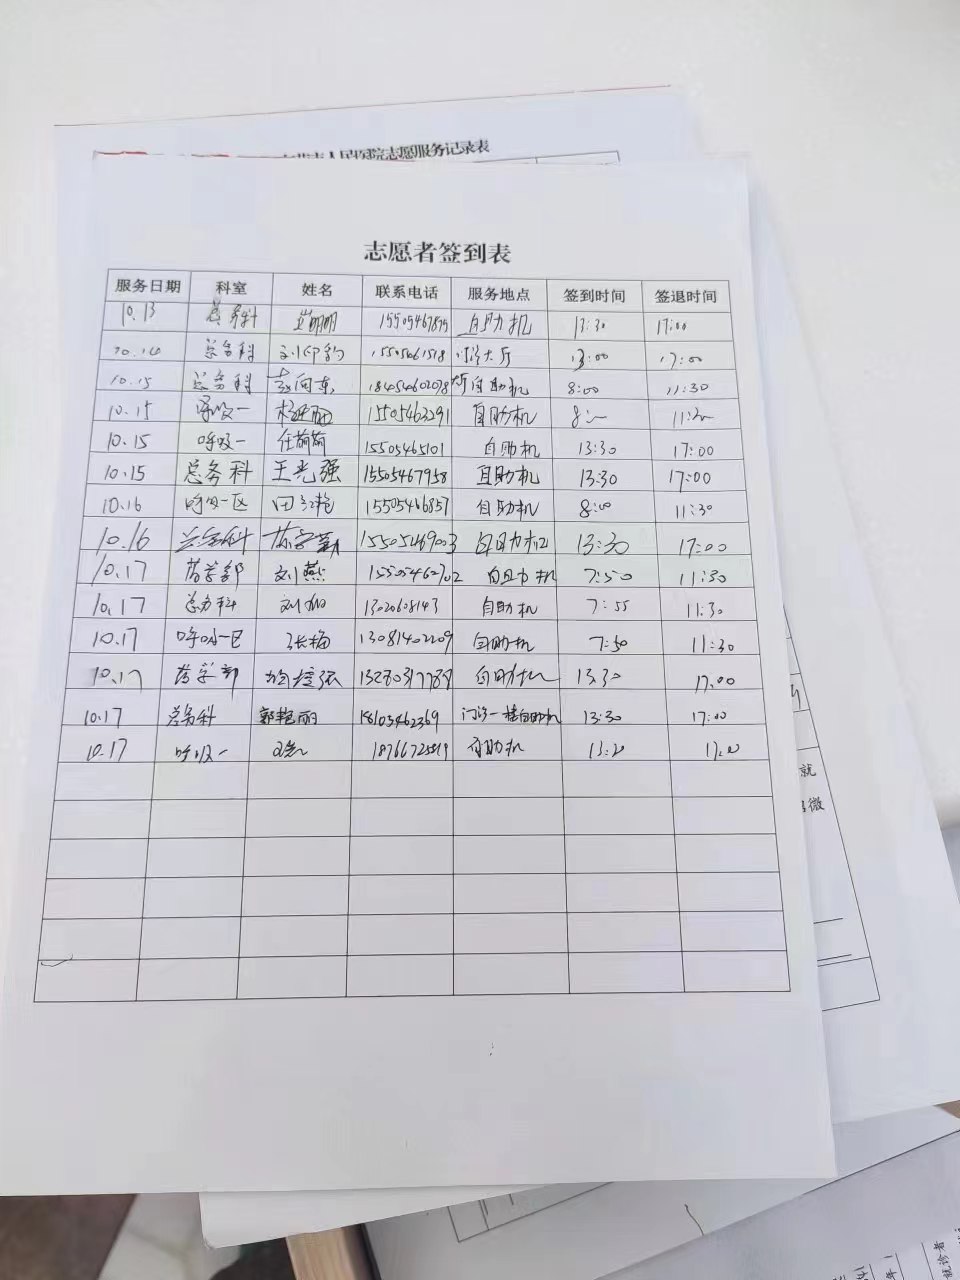 人民医院志愿服务记录表
志愿者签到表
服务日期 科室 姓名 联系电话 服务地点 签到时间 签退时间
10.13 总务科 15505467875 自助机 13:30 17:00
10.14 总务科 大厅 13:00 17:00
10.15 总务科 18454602078 大厅自助机 8:00 11:30
10.15 呼吸一 15505463291 自助机 11:30
10.15 呼吸一 任前前 15505465101 自助机 13:30 17:00
10.15 总务科 王光强 15505467958 自助机 13:30 17:00
10.16 呼吸一区 田红艳 15505466857 自助机 8:00 11:30
10.16 自助机 13:30 17:00
10.17 药学部 刘燕 15505462702 自助机 7:50 11:30
10.17 总务科 13020608143 自助机 7:55 11:30
10.17 呼吸一区 张梅 13081402209 自助机 7:50 11:30
10.17 药学部 自助机 13:30 17:00
10.17 总务科 郭艳丽 18103462369 门诊一楼自助机 13:30 17:00
10.17 呼吸一 自助机
就
微
就诊者